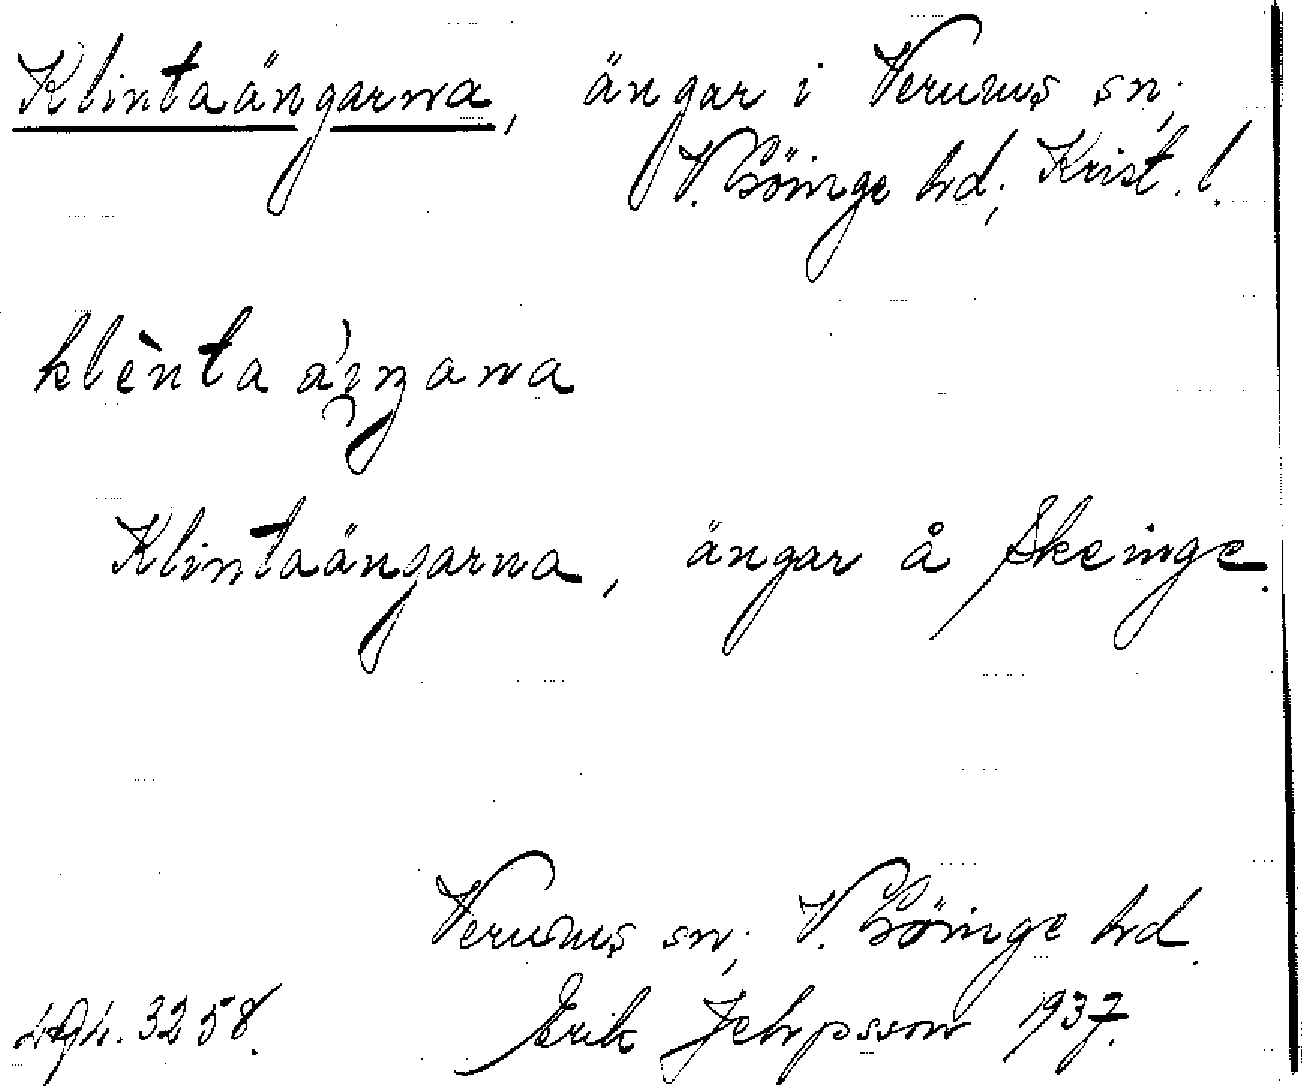 Klintaängarna, ängar i Verums sn;
V. Göinge hd; Krist. l.
klènta ängana
Klintaängarna, ängar å Skeinge.
Verums sn; V. Göinge hd.
494.3258. Erik Jeppsson 1937.